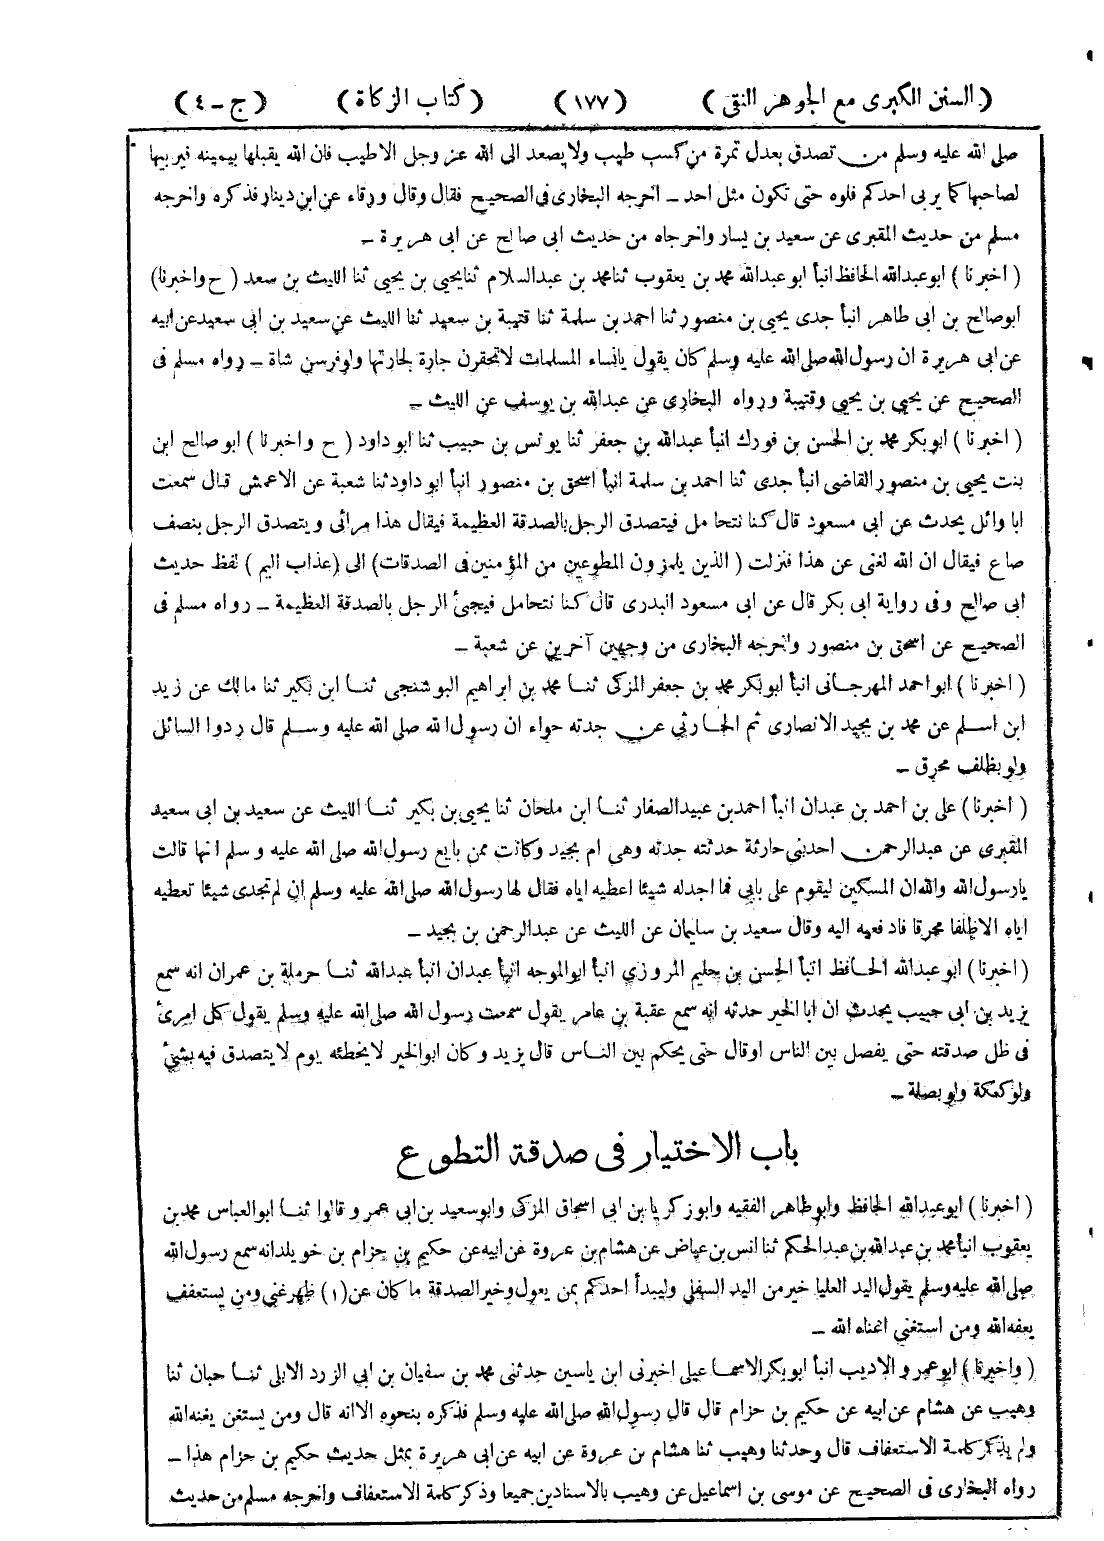 ( السنن الكبرى مع الجوهر النقى ) ( ١٧٧ ) ( كتاب الزكاة ) ( ج ـ ٤ )
صلى الله عليه وسلم من تصدق بعدل تمرة من كسب طيب ولا يصعد الى الله عز وجل الا طيب فان الله يقبلها بيمينه فيربيها
لصاحبها كما يربى احدكم فلوه حتى تكون مثل احد ـ اخرجه البخارى فى الصحيح فقال وقال ورقاء عن ابن دينار فذكره واخرجه
مسلم من حديث المقبرى عن سعيد بن يسار واخرجاه من حديث ابى صالح عن ابى هريرة ـ
( اخبرنا ) ابو عبدالله الحافظ انبأ ابو عبدالله محمد بن يعقوب ثنا محمد بن عبدالسلام ثنا يحيى بن يحيى ثنا الليث بن سعد ( ح واخبرنا )
ابو صالح بن ابى طاهر انبأ جدى يحيى بن منصور ثنا احمد بن سلمة ثنا قتيبة بن سعيد ثنا الليث عن سعيد بن ابى سعيد عن ابيه
عن ابى هريرة ان رسول الله صلى الله عليه وسلم كان يقول يا نساء المسلمات لا تحقرن جارة لجارتها ولو فرسن شاة ـ رواه مسلم فى
الصحيح عن يحيى بن يحيى وقتيبة ورواه البخارى عن عبدالله بن يوسف عن الليث ـ
( اخبرنا ) ابوبكر محمد بن الحسن بن فورك انبأ عبدالله بن جعفر ثنا يونس بن حبيب ثنا ابو داود ( ح واخبرنا ) ابو صالح ابن
بنت يحيى بن منصور القاضى انبأ جدى ثنا احمد بن سلمة انبأ اسحق بن منصور انبأ ابو داود ثنا شعبة عن الاعمش قال سمعت
ابا وائل يحدث عن ابى مسعود قال كنا نتحامل فيتصدق الرجل بالصدقة العظيمة فيقال هذا مرائى ويتصدق الرجل بنصف
صاع فيقال ان الله لغنى عن هذا فنزلت ( الذين يلمزون المطوعين من المؤمنين فى الصدقات ) الى ( عذاب اليم ) لفظ حديث
ابى صالح وفى رواية ابى بكر قال عن ابى مسعود البدرى قال كنا نتحامل فيجئ الرجل بالصدقة العظيمة ـ رواه مسلم فى
الصحيح عن اسحق بن منصور واخرجه البخارى من وجهين آخرين عن شعبة ـ
( اخبرنا ) ابو احمد المهرجانى انبأ ابوبكر محمد بن جعفر المزكى ثنا محمد بن ابراهيم البوشنجى ثنا ابن بكير ثنا مالك عن زيد
ابن اسلم عن محمد بن بجيد الانصارى ثم الحارثي عن جدته حواء ان رسول الله صلى الله عليه وسلم قال ردوا السائل
ولو بظلف محرق ـ
( اخبرنا ) على بن احمد بن عبدان انبأ احمد بن عبيد الصفار ثنا ابن ملحان ثنا يحيى بن بكير ثنا الليث عن سعيد بن ابى سعيد
المقبرى عن عبدالرحمن احد بني حارثة حدثته جدته وهى ام بجيد وكانت ممن بايع رسول الله صلى الله عليه وسلم انها قالت
يا رسول الله والله ان المسكين ليقوم على بابي فما اجد له شيئا اعطيه اياه فقال لها رسول الله صلى الله عليه وسلم ان لم تجدى شيئا تعطيه
اياه الا ظلفا محرقا فادفعيه اليه وقال سعيد بن سليمان عن الليث عن عبدالرحمن بن بجيد ـ
( اخبرنا ) ابو عبدالله الحافظ انبأ الحسن بن حليم المروزي انبأ ابو الموجه انبأ عبدان انبأ عبدالله ثنا حرملة بن عمران انه سمع
يزيد بن ابى حبيب يحدث ان ابا الخير حدثه انه سمع عقبة بن عامر يقول سمعت رسول الله صلى الله عليه وسلم يقول كل امرئ
فى ظل صدقته حتى يفصل بين الناس او قال حتى يحكم بين الناس قال يزيد وكان ابو الخير لا يخطئه يوم لا يتصدق فيه بشئ
ولو كعكة ولو بصلة ـ
باب الاختيار فى صدقة التطوع
( اخبرنا ) ابو عبدالله الحافظ وابو طاهر الفقيه وابو زكريا بن ابى اسحاق المزكى وابو سعيد بن ابى عمرو قالوا ثنا ابو العباس محمد بن
يعقوب انبأ محمد بن عبدالله بن عبدالحكم ثنا انس بن عياض عن هشام بن عروة عن ابيه عن حكيم بن حزام بن خويلد انه سمع رسول الله
صلى الله عليه وسلم يقول اليد العليا خير من اليد السفلى وليبدأ احدكم بمن يعول وخير الصدقة ما كان عن (١) ظهر غنى ومن يستعفف
يعفه الله ومن استغنى اغناه الله ـ
( واخبرنا ) ابو عمرو الاديب انبأ ابو بكر الاسماعيلى اخبرنى ابن ياسين حدثنى محمد بن سفيان بن ابي الزرد الابلى ثنا حبان ثنا
وهيب عن هشام عن ابيه عن حكيم بن حزام قال قال رسول الله صلى الله عليه وسلم فذكره بنحوه الا انه قال ومن يستغن يغنه الله
ولم يذكر كلمة الاستعفاف قال وحدثنا وهيب ثنا هشام بن عروة عن ابيه عن ابى هريرة بمثل حديث حكيم بن حزام هذا ـ
رواه البخارى فى الصحيح عن موسى بن اسماعيل عن وهيب بالاسنادين جميعا وذكر كلمة الاستعفاف واخرجه مسلم من حديث